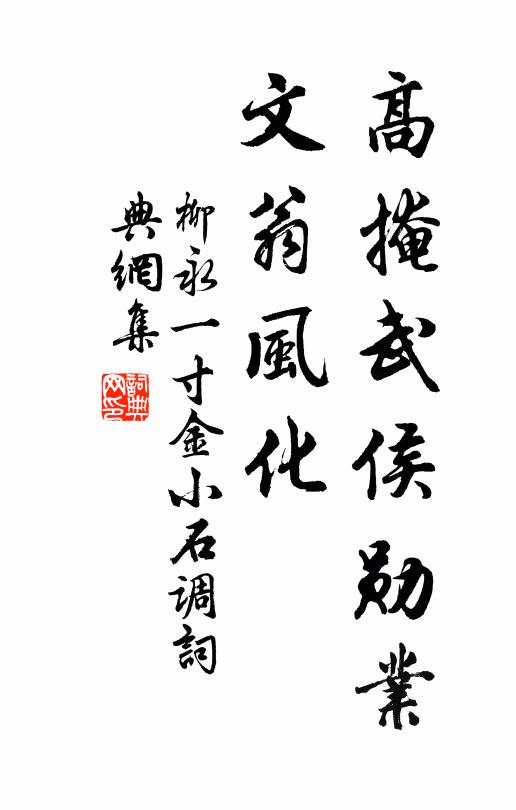 高掩武侯勋業
文翁風化
柳永一寸金小石调詞
典網集
詞典网印